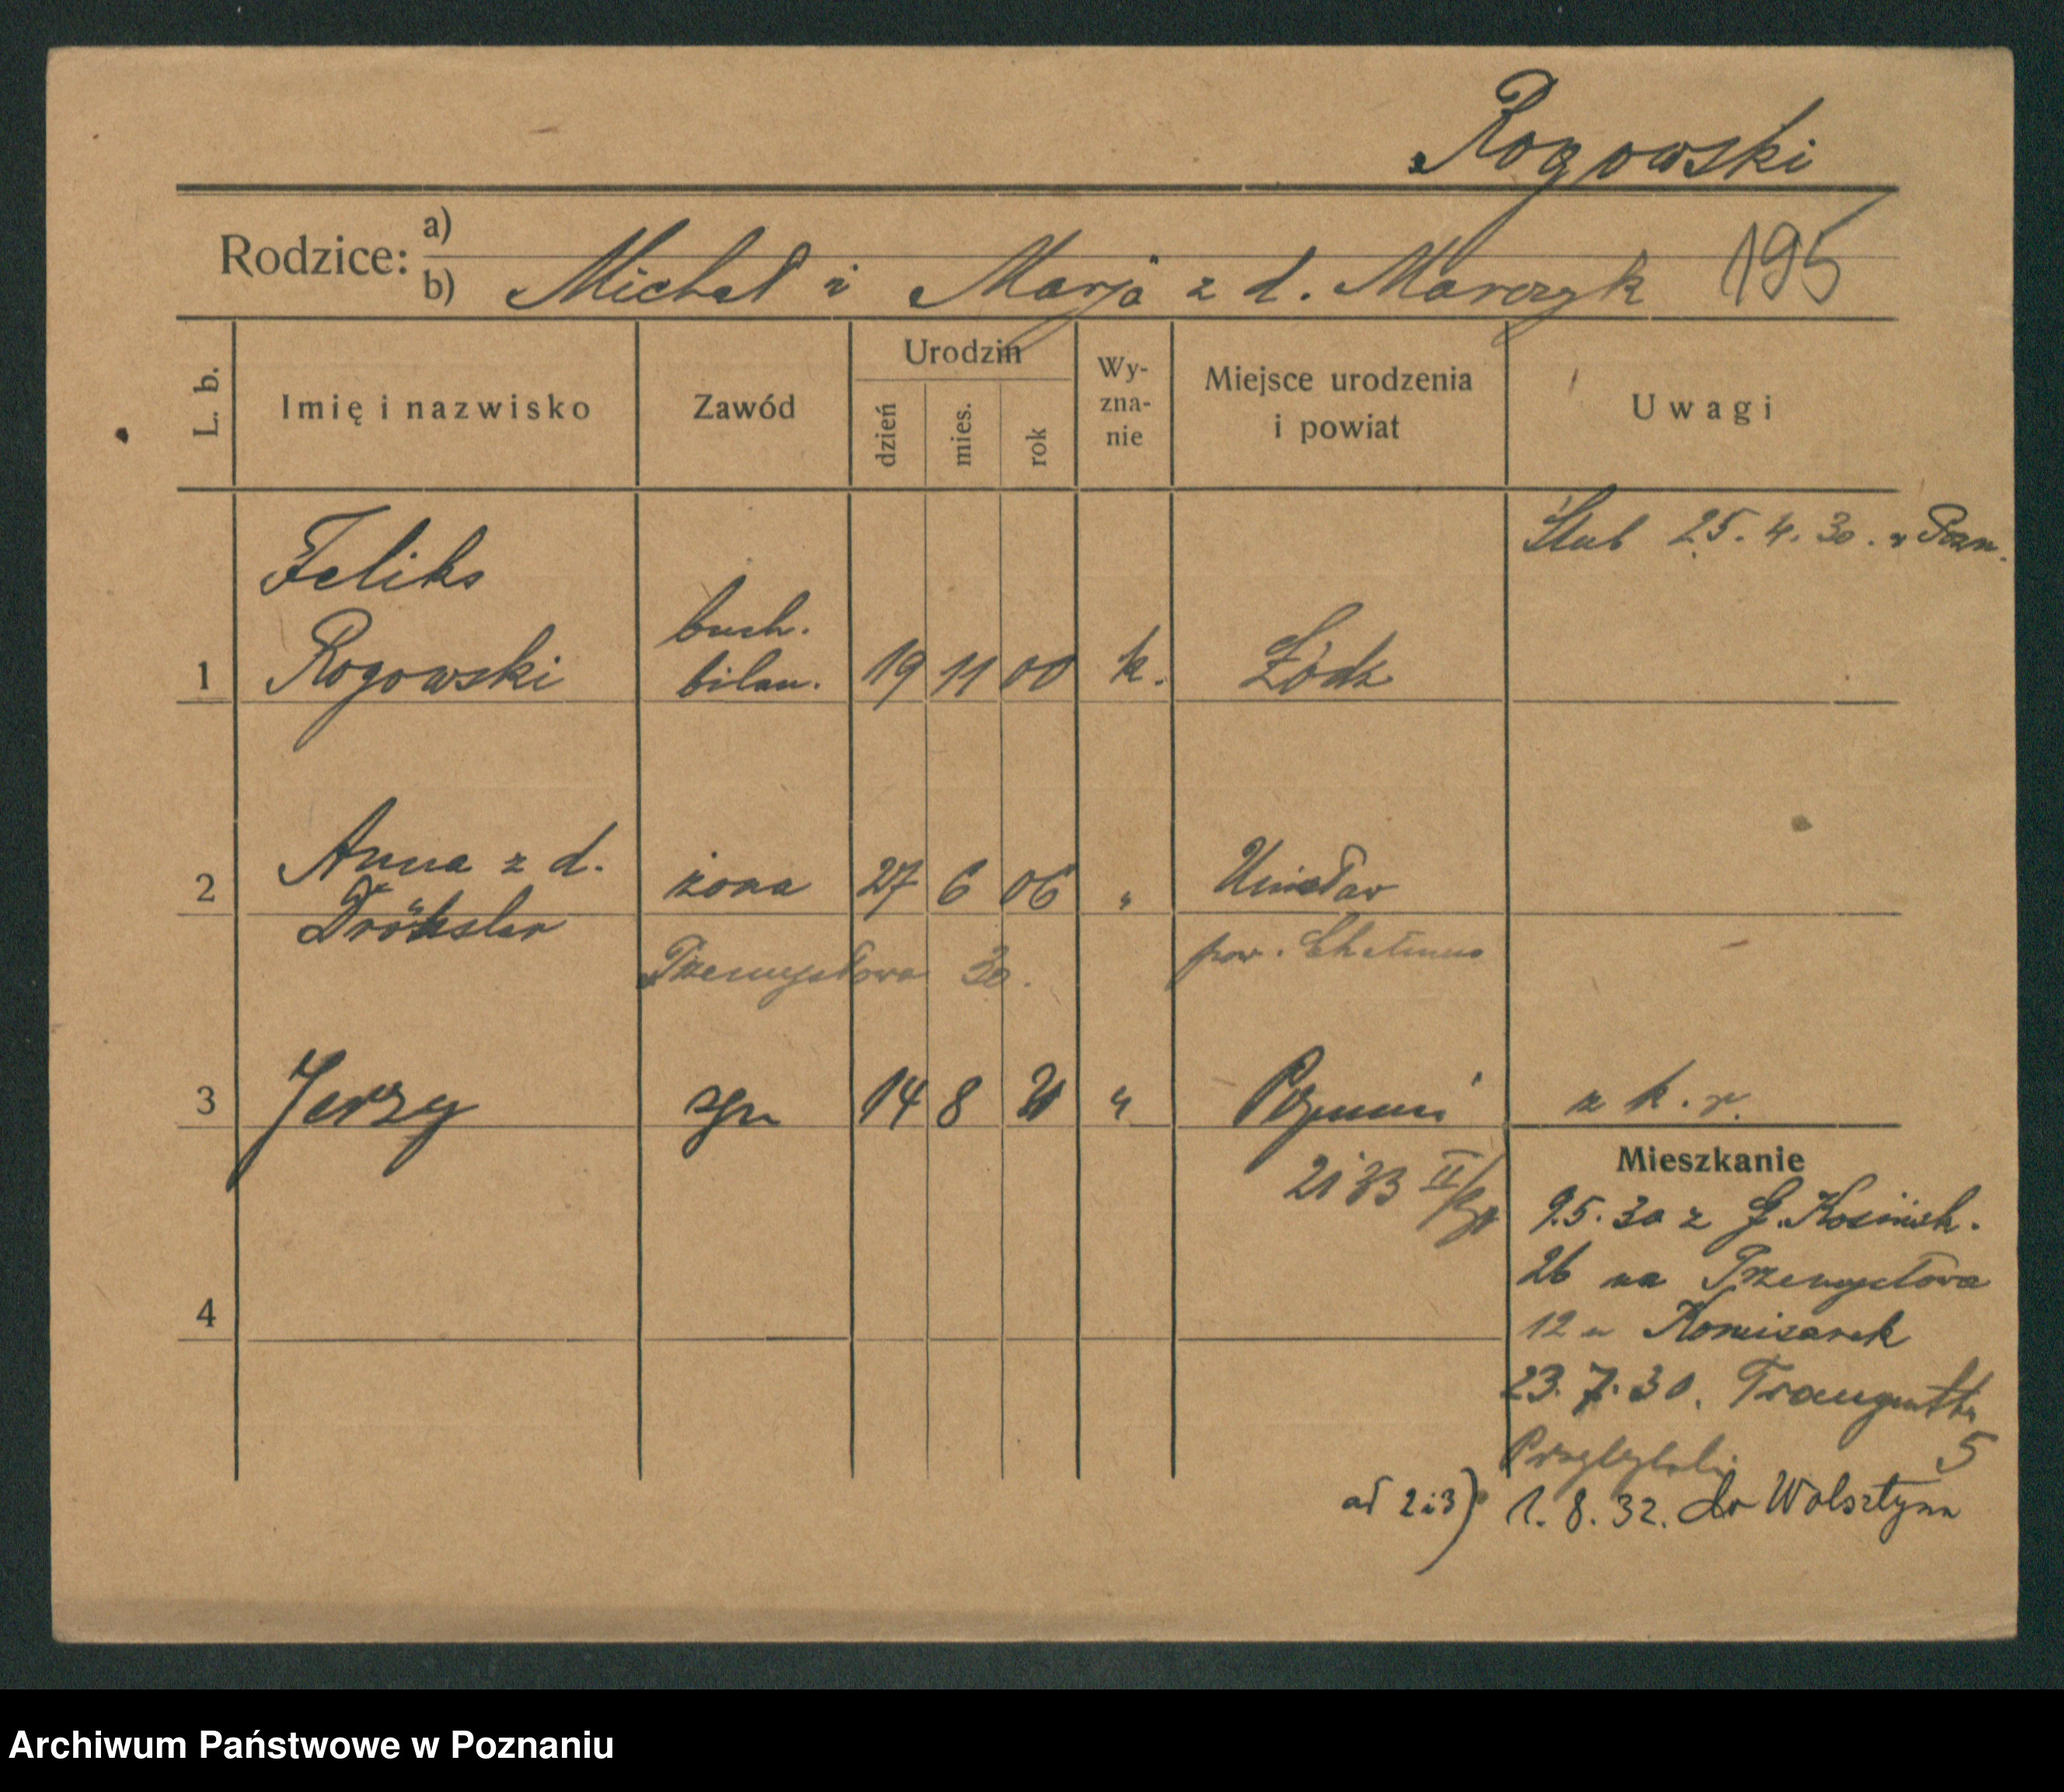 Rogowski
Rodzice: a)
b) Michał i Marja z d. Marczyk 195
L. b. Imię i nazwisko Zawód Urodzin dzień mies. rok Wy-zna-nie Miejsce urodzenia i powiat Uwagi
Ślub 25. 4. 30. w Pozn.
Feliks
buch.
1 Rogowski bilan. 19 11 00 k. Łódz
Anna z d.
2 żona 27 6 06 " Unisław
Dröksler
Przemysłowa 30. pow. Chełmno
3 Jerzy syn 14 8 31 " Poznań z k. r.
Mieszkanie
9.5.30 z G. Kosińsk.
26 na Przemysłowa
4
12 u Komisarek
23. 7. 30. Traugutta
5
ad 2i3) 1. 8. 32. do Wolsztyna
Archiwum Państwowe w Poznaniu